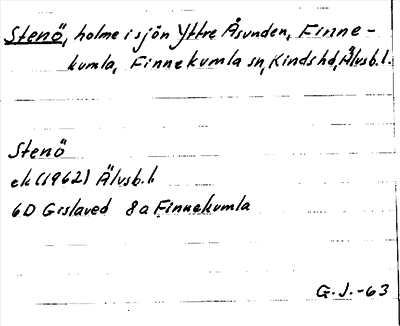 Stenö, holme i sjön Yttre Åsunden, Finne-
kumla, Finnekumla sn, Kinds hd, Älvsb. l.
Stenö
ek (1962) Älvsb. l.
6D Gislaved 8a Finnekumla
G. J. -63